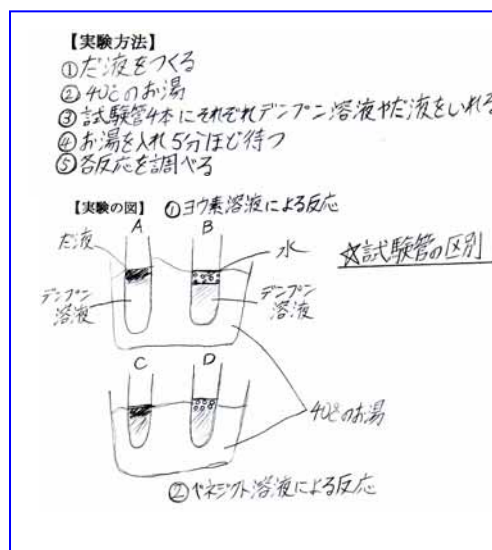 【実験方法】
①だ液をつくる
②40℃のお湯
③試験管4本にそれぞれデンプン溶液やだ液をいれる
④お湯を入れ5分ほど待つ
⑤各反応を調べる
【実験の図】 ①ヨウ素溶液による反応
A B
だ液 水
☆試験管の区別
デンプン溶液 デンプン溶液
C D
40℃のお湯
②ベネジクト溶液による反応